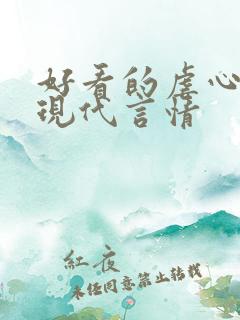 好看的虐心
現代言情
紅夜
未经同意禁止转载